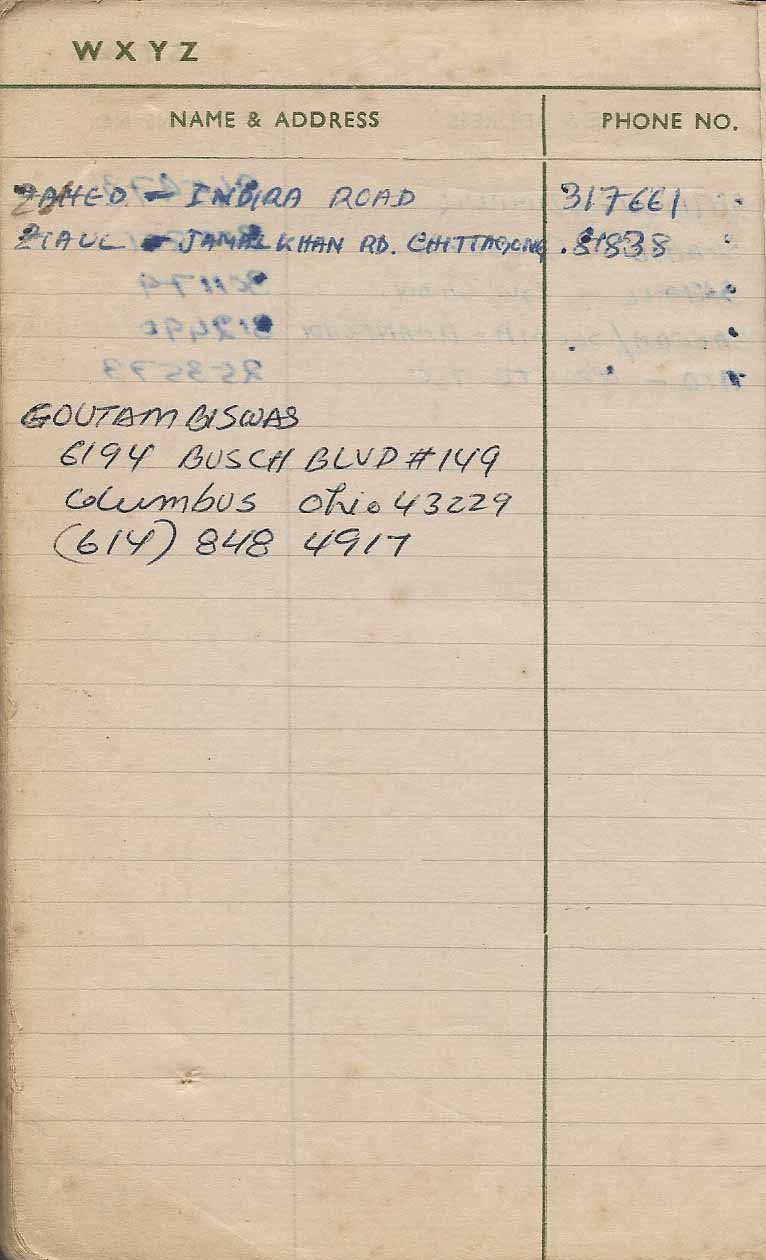 W X Y Z
NAME & ADDRESS PHONE NO.
ZAHED - INDIRA ROAD 317661
ZIAUL - JAMAL KHAN RD. CHITTAGONG. 81838
GOUTAM BISWAS
6194 BUSCH BLVD #149
Columbus Ohio 43229
(614) 848 4917